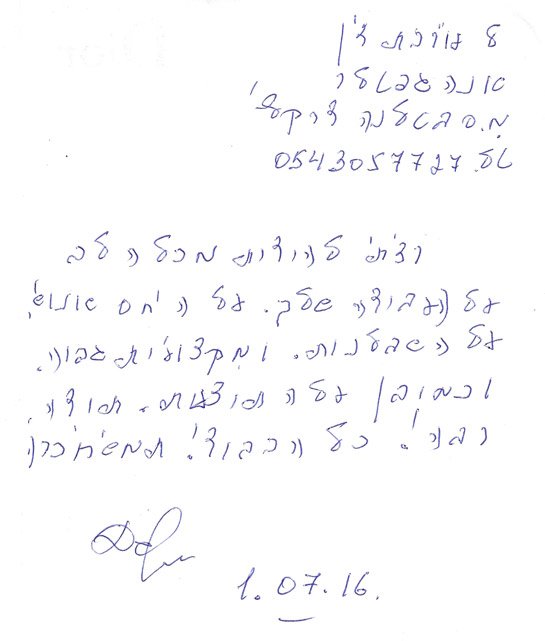 ל עורכת דין
אנה גבטלר
מ.ס בטלנה דרקצ'י
טל. 0543057727
רציתי להודות מכל ה לב
על העבודה שלך. על ה יחס אנושי,
על ה שבלנות. ומקצועיות גבוה.
וכמובן על ה תוצאות. תודה.
רבה! כל הכבוד! תמשיכי כך!
1.07.16.